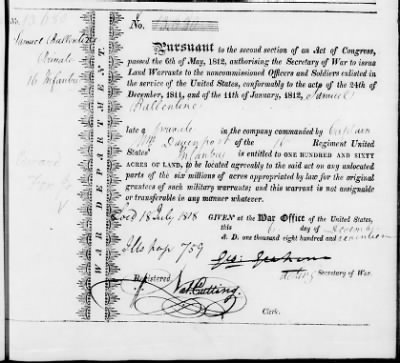 13,680
Samuel Ballentine
Private
16 Infantry
WAR DEPARTMENT.
No. 13,680
Pursuant to the second section of an Act of Congress,
passed the 6th of May, 1812, authorising the Secretary of War to issue
Land Warrants to the noncommissioned Officers and Soldiers enlisted in
the service of the United States, conformably to the acts of the 24th of
December, 1811, and of the 11th of January, 1812, Samuel
Ballentine
late a private in the company commanded by Captain
Wm Davenport of the 16 Regiment United
States' Infantry is entitled to ONE HUNDRED AND SIXTY
ACRES OF LAND, to be located agreeably to the said act on any unlocated
parts of the six millions of acres appropriated by law for the original
grantees of such military warrants; and this warrant is not assignable
or transferable in any manner whatever.
Locd 18 July 1818 GIVEN at the War Office of the United States,
this day of November
A. D. one thousand eight hundred and seventeen
Ills pap 759
Geo: Graham
acting Secretary of War.
Registered
Nat Cutting.
Clerk.